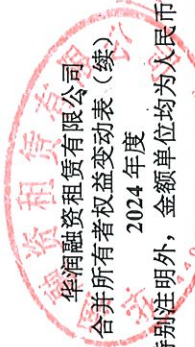 华润融资租赁有限公司
合并所有者权益变动表（续）
2024 年度
特别注明外，金额单位均为人民币